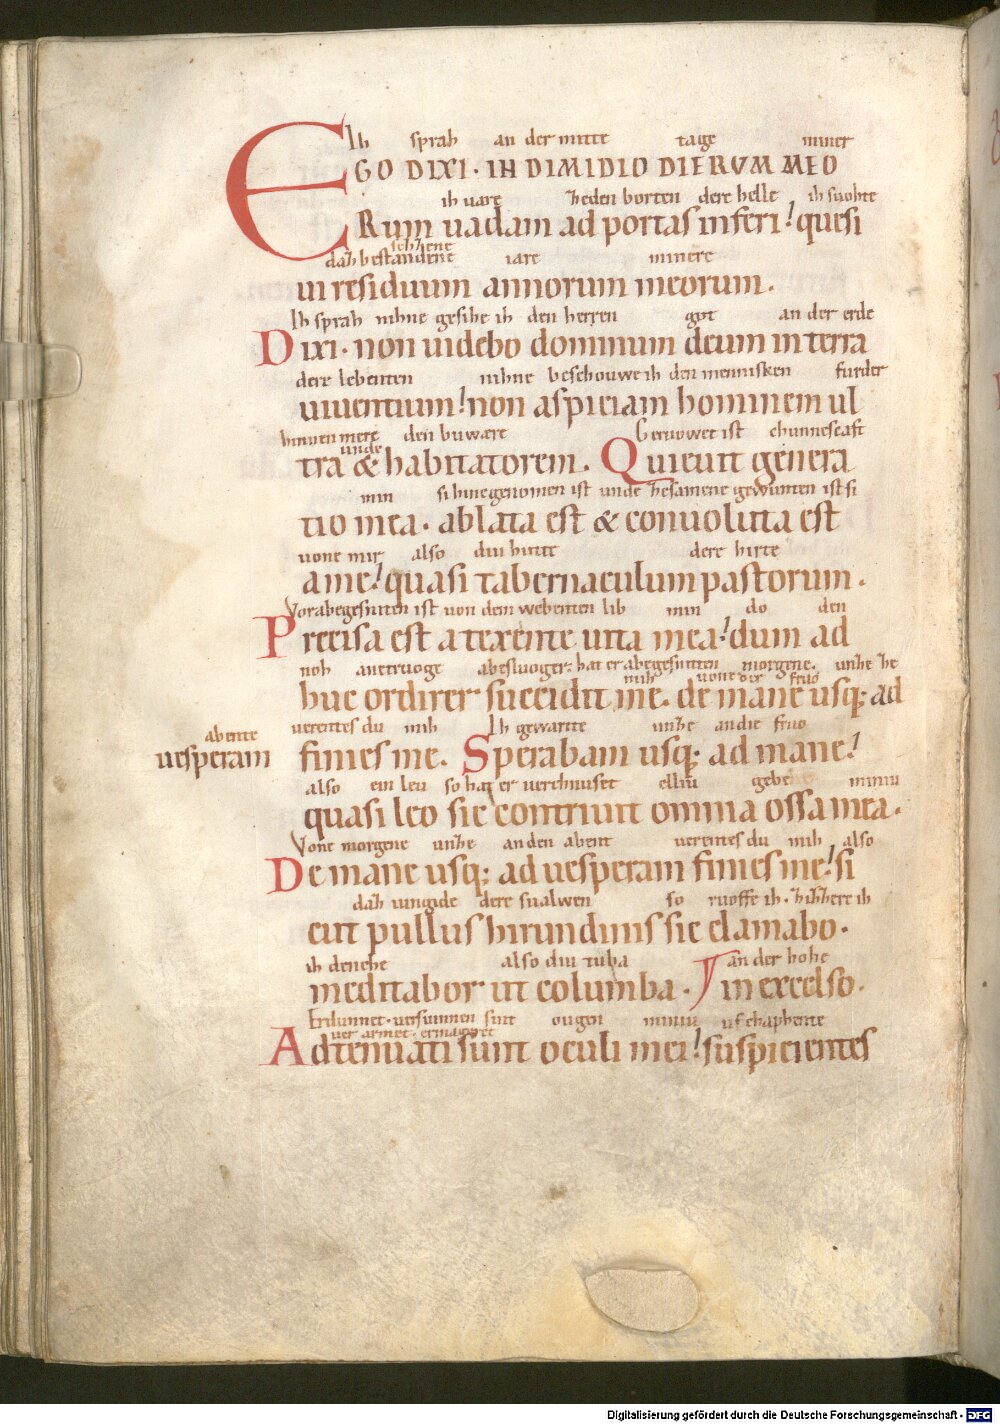 Ih sprah an der mitte tage miner
EGO DIXI · IN DIMIDIO DIERVM MEO
ih uare zeden borten dere helle ih suohte
Rum uadam ad portas inferi! quesi
sehzene
daz bestandene iare minere
ui residuum annorum meorum.
Ih sprah nihne gesihe ih den herren got an der erde
Dixi · non uidebo dominum deum in terra
dere lebenten nihne beschouwe ih den mennisken furder
uiuentium! non aspiciam hominem ul
hinnen mere den buwære Geruowet ist chunnescaft
unde
tra & habitatorem. Quieuit genera
min si hinegenomen ist unde zesamene gewunten ist si
tio mea · ablata est & conuoluta est
uone mir also diu hutte dere hirte
a me! quasi tabernaculum pastorum.
Vorabegesniten ist uon dem webenten lib min do den
Precisa est a texente uita mea! dum ad
noh anetruoge abesluoger: hat er abegesnitten morgene. unze ze
mih uone der fruo
huc ordirer succidit me. de mane usq; ad
abente
uesperam
uerentes du mih Ih gewartte unze an die fruo
finies me. Sperabam usq; ad mane!
also ein leu so hat er uerchnuset elliu gebe miniu
quasi leo sic contriuit omnia ossa mea.
Vone morgene unze an den abent uerentes du mih also
De mane usq; ad uesperam finies me! si
daz iungide dere sualwen so ruoffe ih.
cut pullus hirundinis sic clamabo.
ih denche also diu tuba an der hohe
meditabor ut columba. in excelso.
Erdunnet. uersuinen sint ougen miniu uf chaphente
uer armet. ermageret
Adtenuati sunt oculi mei! suspicientes
Digitalisierung gefördert durch die Deutsche Forschungsgemeinschaft - DFG